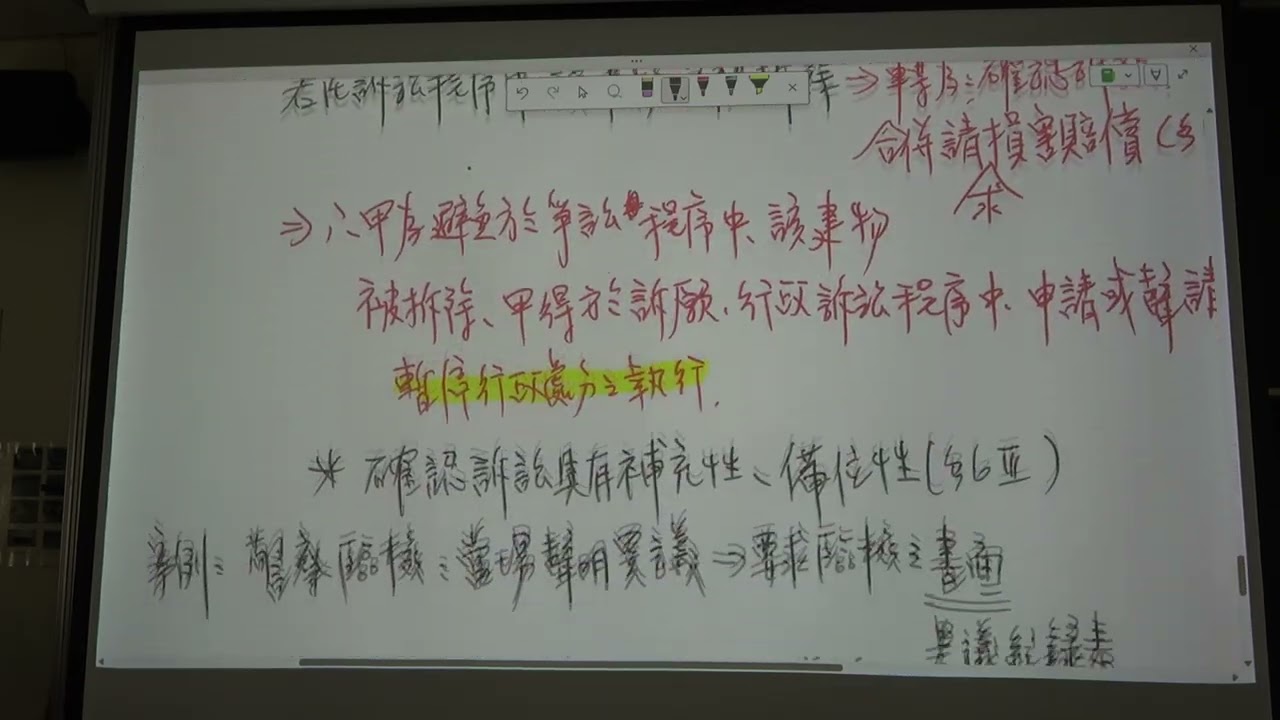 若此訴訟程序
⇒轉為:確認
合併請損害賠償(§
求
⇒∴甲為避免於爭訟程序中、該建物
被拆除、甲得於訴願、行政訴訟程序中、申請或聲請
暫停行政處分之執行.
* 確認訴訟具有補充性、備位性(§6Ⅲ)
案例: 警察臨檢:當場聲明異議⇒要求臨檢之書面
異議紀錄表